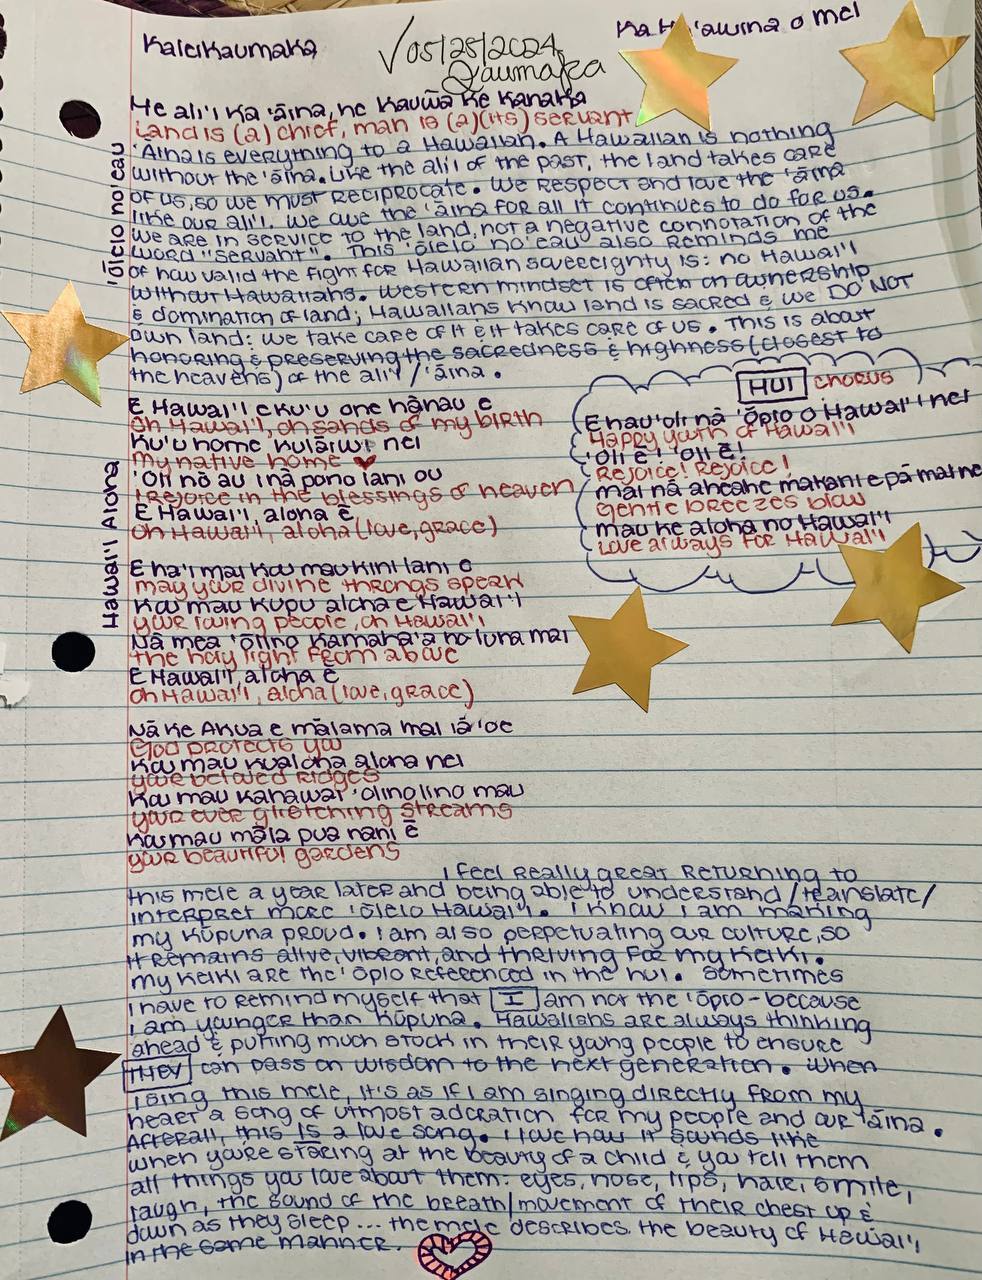 Kaleikaumaka
✓ 05/28/2024
Kaumaka
Ka Ha'awina o mei
'ōlelo no'eau
He ali'i ka 'āina, he kauwā ke kanaka
Land is (a) chief, man is (a)(its) servant
'Āina is everything to a Hawaiian. A Hawaiian is nothing
without the 'āina. Like the ali'i of the past, the land takes care
of us, so we must reciprocate. We respect and love the 'āina
like our ali'i. We owe the 'āina for all it continues to do for us.
We are in service to the land, not a negative connotation of the
word "servant". This 'ōlelo no'eau also reminds me
of how valid the fight for Hawaiian sovereignty is: no Hawai'i
without Hawaiians. Western mindset is often on ownership
& domination of land; Hawaiians know land is sacred & we DO NOT
own land: we take care of it & it takes care of us. This is about
honoring & preserving the sacredness & highness (closest to
the heavens) of the ali'i / 'āina.
Hawai'i Aloha
E Hawai'i e ku'u one hānau e
Oh Hawai'i, oh sands of my birth
Ku'u home kulāiwi nei
My native home
'Oli nō au i nā pono lani ou
I rejoice in the blessings of heaven
E Hawai'i, aloha ē
Oh Hawai'i, aloha (love, grace)
HUI chorus
E hau'oli nā 'ōpio o Hawai'i nei
Happy youth of Hawai'i
'Oli ē! 'Oli ē!
Rejoice! Rejoice!
Mai nā aheahe makani e pā mai nei
Gentle breezes blow
Mau ke aloha no Hawai'i
Love always for Hawai'i
E ha'i mai kou mau kini lani e
May your divine throngs speak
Kou mau kupu aloha e Hawai'i
Your loving people, oh Hawai'i
Nā mea 'ōlino kamaha'o no luna mai
the holy light from above
E Hawai'i, aloha ē
Oh Hawai'i, aloha (love, grace)
Nā ke Akua e mālama mai iā 'oe
God protects you
Kou mau kualona aloha nei
your beloved ridges
Kou mau kahawai 'ōlinolino mau
your ever glistening streams
Kou mau māla pua nani ē
your beautiful gardens
I feel really great returning to
this mele a year later and being able to understand/translate/
interpret more 'ōlelo Hawai'i. I know I am making
my kūpuna proud. I am also perpetuating our culture, so
it remains alive, vibrant, and thriving for my keiki.
My keiki are the 'ōpio referenced in the hui. Sometimes
I have to remind myself that I am not the 'ōpio - because
I am younger than kūpuna. Hawaiians are always thinking
ahead & putting much stock in their young people to ensure
they can pass on wisdom to the next generation. When
I sing this mele, it's as if I am singing directly from my
heart a song of utmost adoration for my people and our 'āina.
Afterall, this is a love song. I love how it sounds like
when you're staring at the beauty of a child & you tell them
all things you love about them: eyes, nose, lips, hair, smile,
laugh, the sound of the breath/movement of their chest up &
down as they sleep... the mele describes the beauty of Hawai'i
in the same manner.